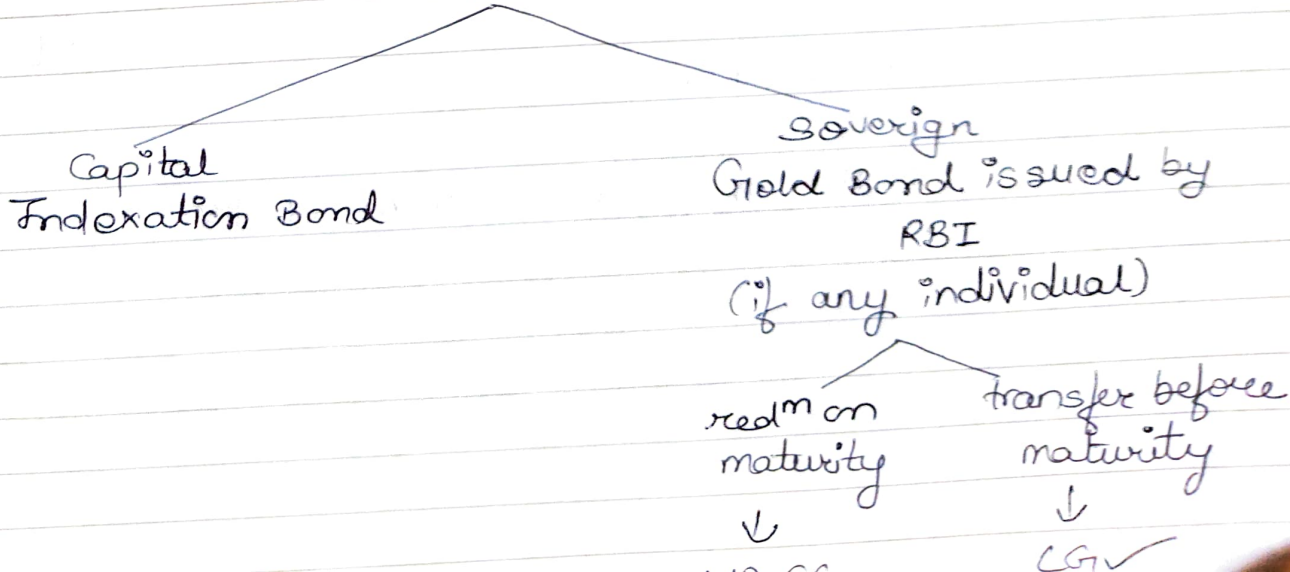 Capital
Indexation Bond
Soverign
Gold Bond issued by
RBI
(if any individual)
redᵐ on
maturity
↓
transfer before
maturity
↓
CG✓